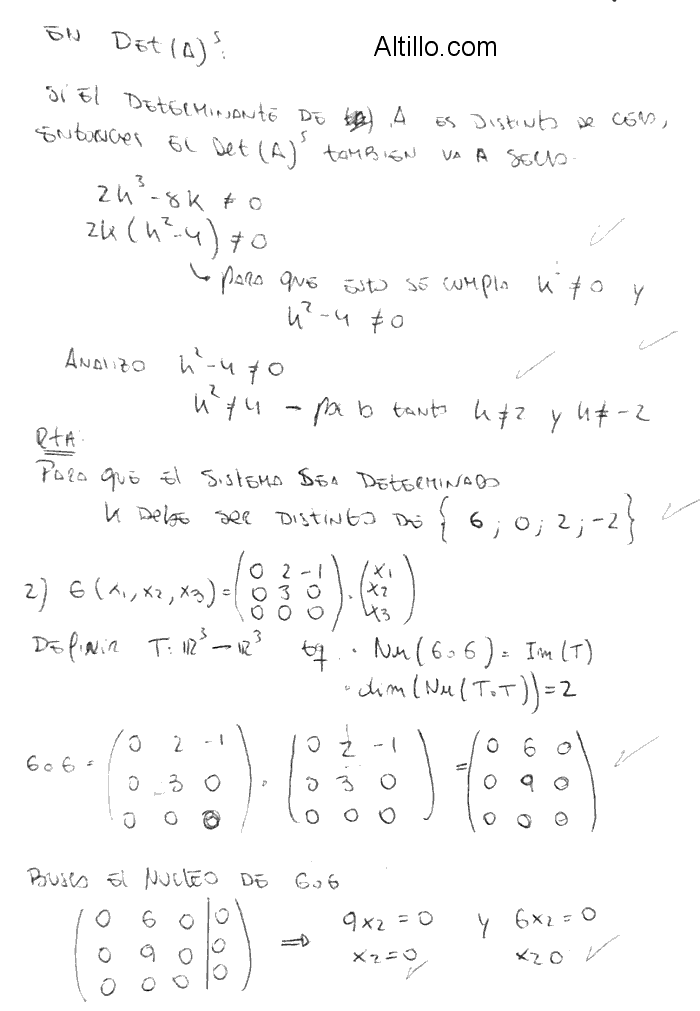 EN Det(A)⁵:
Altillo.com
SI EL DETERMINANTE DE A ES DISTINTO DE CERO,
ENTONCES EL Det(A)⁵ TAMBIEN VA A SERLO.
2k³ - 8k ≠ 0
2k(k² - 4) ≠ 0
↳ PARA QUE ESTO SE CUMPLA k ≠ 0 y
k² - 4 ≠ 0
ANALIZO k² - 4 ≠ 0
k² ≠ 4 - por lo tanto k ≠ 2 y k ≠ -2
RTA:
PARA QUE EL SISTEMA SEA DETERMINADO
k DEBE SER DISTINTO DE { 6 ; 0 ; 2 ; -2 }
2) G(x₁, x₂, x₃) = (0 2 -1 / 0 3 0 / 0 0 0) . (x₁ / x₂ / x₃)
DEFINIR T: ℝ³ → ℝ³ tq . Nu(G∘G) = Im(T)
. dim(Nu(T∘T)) = 2
G∘G = (0 2 -1 / 0 3 0 / 0 0 0) . (0 2 -1 / 0 3 0 / 0 0 0) = (0 6 0 / 0 9 0 / 0 0 0)
BUSCO EL NUCLEO DE G∘G
(0 6 0 | 0 / 0 9 0 | 0 / 0 0 0 | 0) ⇒ 9x₂ = 0 y 6x₂ = 0
x₂ = 0 x₂ 0